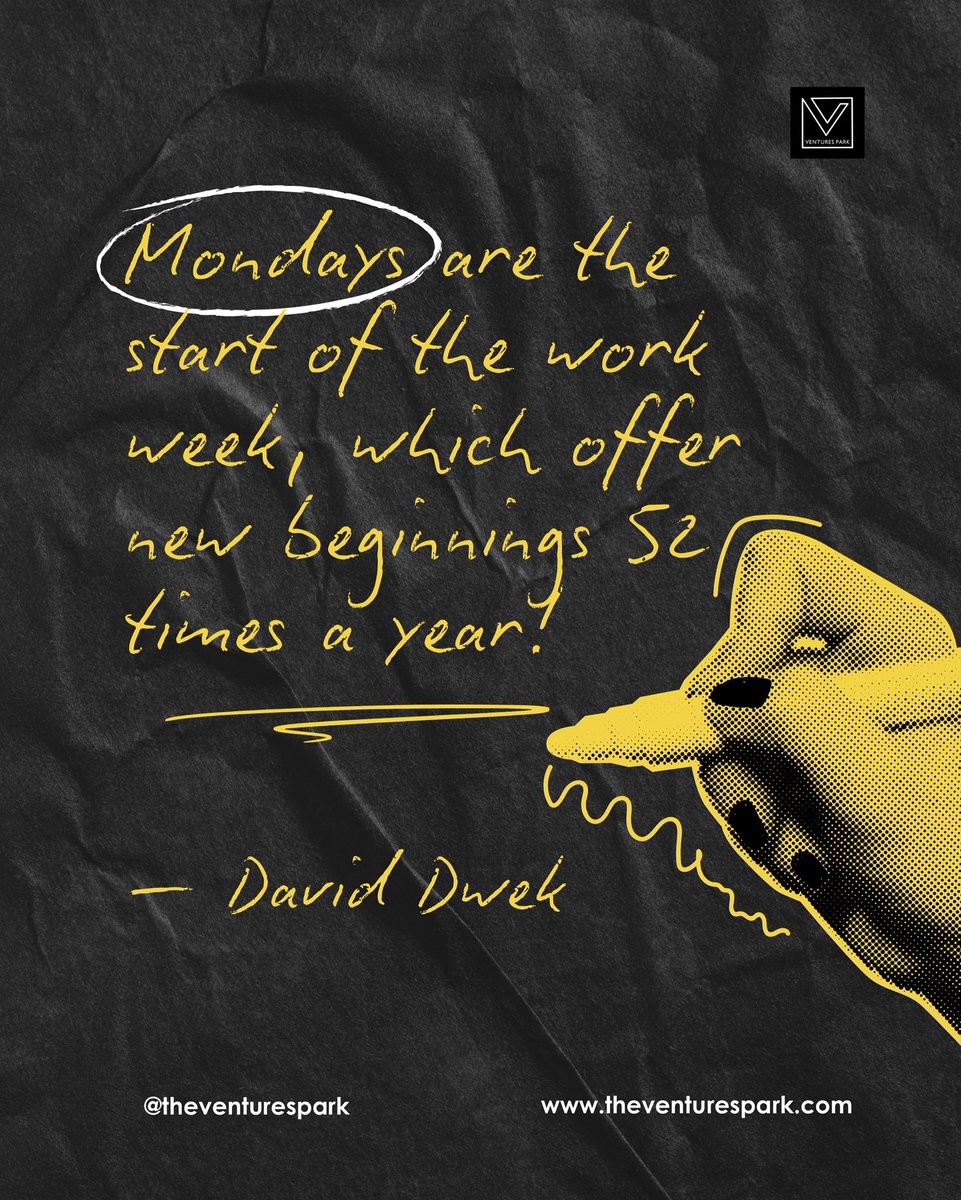 VENTURES PARK
Mondays are the
start of the work
week, which offer
new beginnings 52
times a year!
— David Dwek
@theventurespark
www.theventurespark.com